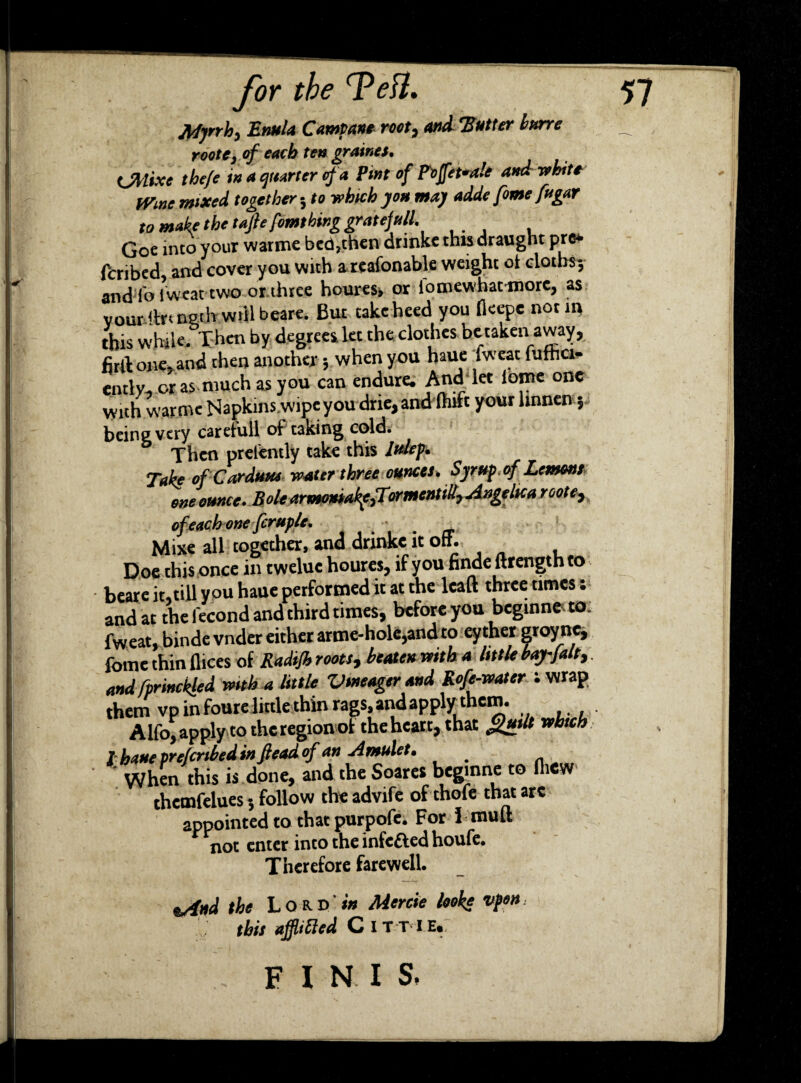 for the Pest.
57
Myrrh, Enula Campane root, and Butter burre
roote, of each ten graines.
Mixe these in a quarter of a Pint of Posset-ale and white
Wine mixed together; to which you may adde some sugar
to make the taste somthing gratefull.
Goe into your warme bed, then drinke this draught pre-
scribed, and cover you with a reasonable weight of cloths;
and so sweat two or three houres, or somewhat more, as
your strength will beare. But take heed you sleepe not in
this while. Then by degrees let the clothes be taken away,
first one, and then another; when you haue sweat suffici-
ently, or as much as you can endure. And let some one
with warme Napkins wipe you drie, and shift your linnen;
being very carefull of taking cold.
Then presently take this Iulep.
Take of Carduus water three ounces. Syrup of Lemons
one ounce. Bole armoniake, Tormentill, Angelica roote,
of each one scruple.
Mixe all together, and drinke it off.
Doe this once in twelue houres, if you finde strength to
beare it, till you haue performed it at the least three times:
and at the second and third times, before you beginne to
sweat, binde vnder either arme-hole, and to eyther groyne,
some thin slices of Radish roots, beaten with a little bay-salt,
and sprinckled with a little Vineager and Rose-water: wrap
them vp in foure little thin rags, and apply them.
Also, apply to the region of the heart, that Quilt which
I haue prescribed in stead of an Amulet.
When this is done, and the Soares beginne to shew
themselues; follow the advise of those that are
appointed to that purpose. For I must
not enter into the infected house.
Therefore farewell.
And the LORD in Mercie looke vpon
this afflicted CITTIE.
FINIS.